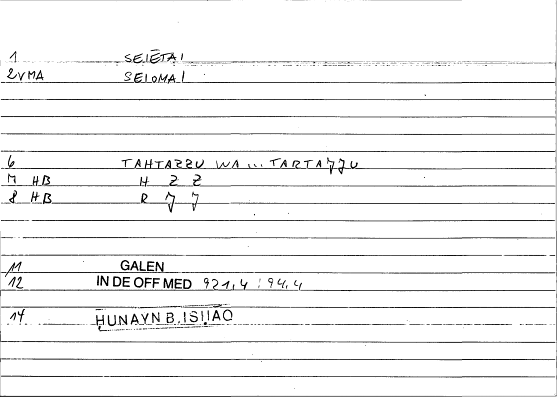 1 SEIĒTAI
2 VMA SELOMAI
6 TAHTAZZU WA ... TARTAJJU
7 HB H Z Z
8 HB R J J
11 GALEN
12 IN DE OFF MED 921,4 : 94,4
14 HUNAYN B. ISHAQ